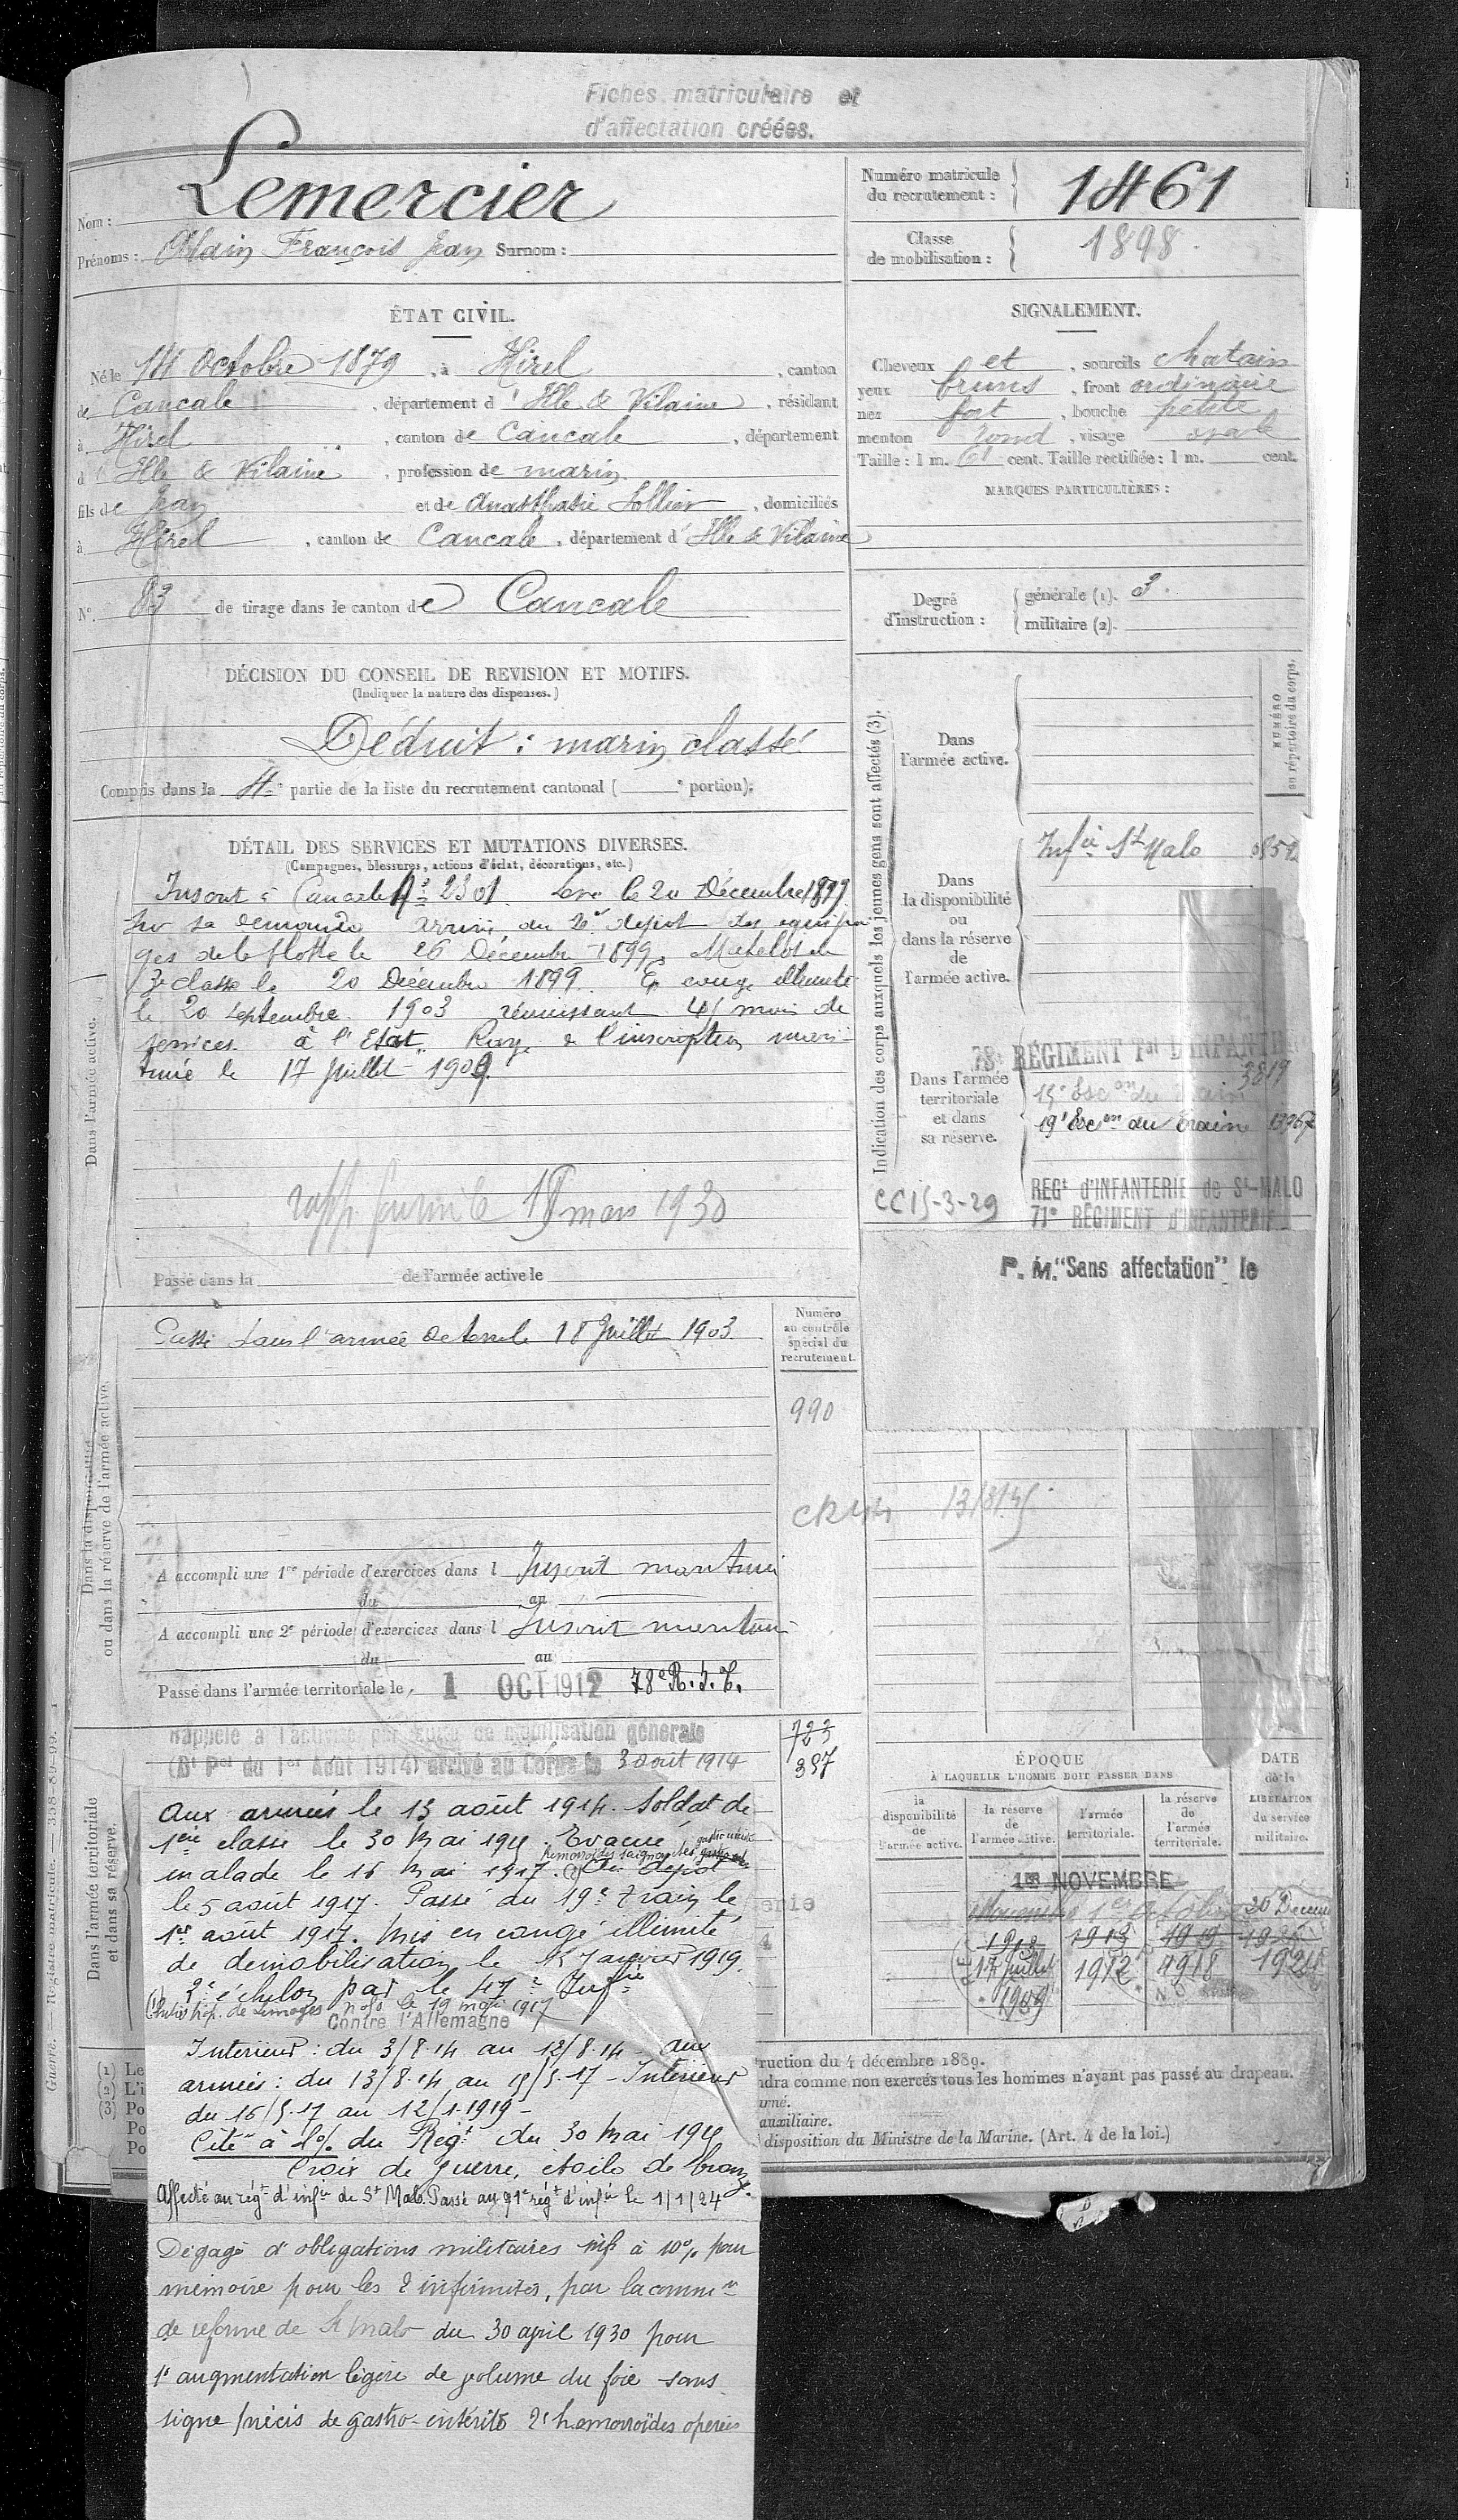 Fiches matriculaire et
d'affectation créées.
Nom : Lemercier
Prénoms : Alain François Jean Surnom :
Numéro matricule
du recrutement : 1461
Classe
de mobilisation : 1898.
ÉTAT CIVIL.
Né le 14 Octobre 1879, à Hirel, canton
de Cancale, département d'Ille & Vilaine, résidant
à Hirel, canton de Cancale, département
d'Ille & Vilaine, profession de marin
fils de Jean et de Anasthasie Sollier, domiciliés
à Hirel, canton de Cancale, département d'Ille & Vilaine
N° 83 de tirage dans le canton de Cancale
SIGNALEMENT.
Cheveux et, sourcils chatain
yeux bruns, front ordinaire
nez fort, bouche petite
menton rond, visage ovale
Taille : 1 m. 61 cent. Taille rectifiée : 1 m. cent.
MARQUES PARTICULIÈRES :
Degré
d'instruction :
générale (1). 3.
militaire (2).
DÉCISION DU CONSEIL DE REVISION ET MOTIFS.
(Indiquer la nature des dispenses.)
Déduit : marin classé
Compris dans la 4e partie de la liste du recrutement cantonal ( e portion);
DÉTAIL DES SERVICES ET MUTATIONS DIVERSES.
(Campagnes, blessures, actions d'éclat, décorations, etc.)
Inscrit à Cancale N° 2301 Levé le 20 Décembre 1899
sur sa demande arrivé au 2e depot des equipa
ges de la flotte le 26 Décembre 1899. Matelot de
3e classe le 20 Décembre 1899. En congé illimité
le 20 Septembre 1903 réunissant 45 mois de
services à l'Etat. Rayé de l'inscription mari-
time le 17 Juillet 1909.
rapp. fourni le 18 mars 1930
Passé dans la de l'armée active le
Dans l'armée active.
Indication des corps auxquels les jeunes gens sont affectés (3).
NUMÉRO
au répertoire du corps.
Dans
l'armée active.
Dans
la disponibilité
ou
dans la réserve
de
l'armée active.
Infie St Malo
Dans l'armée
territoriale
et dans
sa réserve.
78e RÉGIMENT Tal D'INFANTERIE
3819
15e Escon du Train
19e Escon du Train 13967
REGt d'INFANTERIE de St-MALO
71e RÉGIMENT d'INFANTERIE
CC 15-3-29
P. M. "Sans affectation" le
Passé dans l'armée de terre le 18 Juillet 1903
Numéro
au contrôle
spécial du
recrutement.
990
13/8/45
Dans la disponibilité
ou dans la réserve de l'armée active.
A accompli une 1re période d'exercices dans l Inscrit maritime
du au
A accompli une 2e période d'exercices dans l Inscrit maritime
du au
Passé dans l'armée territoriale le 1 OCT 1912 78e R.I.T.
Dans l'armée territoriale
et dans sa réserve.
Rappelé à l'activité par suite de mobilisation générale
(Dt Pel du 1er Août 1914) arrivé au Corps le 3 aout 1914
723
357
Aux armées le 13 août 1914. Soldat de
1ère classe le 30 Mai 191. Evacué
hémorroïdes saignantes
malade le 16 mai 1917. (1) Au dépot
le 5 août 1917. Passé au 19e train le
1er août 1917. Mis en congé illimité
de démobilisation le Janvier 1919.
2e échelon par le 47e Infie
(1) Entré hôp. de Limoges le 19 mai 1917
Contre l'Allemagne
Intérieur : du 3/8.14 au 12/8.14 - aux
armées : du 13/8.14 au 15/5.17 - Intérieur
du 16/5.17 au 12/1.1919 -
Cité à l'o/. du Régt du 30 Mai 191
Croix de guerre, étoile de bronze.
Affecté au régt d'infie de St Malo. Passé au 71e régt d'infie le 1/1/24
Dégagé d'obligations militaires inf. à 10% pour
mémoire pour les 2 infirmités, par la common
de réforme de St Malo du 30 april 1930 pour
1° augmentation légère de volume du foie sans
signe précis de gastro-entérite 2° hémorroïdes opérées
ÉPOQUE
À LAQUELLE L'HOMME DOIT PASSER DANS
DATE
de la
LIBÉRATION
du service
militaire.
la
disponibilité
de
l'armée active.
la réserve
de
l'armée active.
l'armée
territoriale.
la réserve
de
l'armée
territoriale.
1er NOVEMBRE
1913 1919
17 Juillet
1909
1912 1918
Guerre. — Registre matricule. — 358-89-99.
(1) Le
(2) L'i
(3) Po
Po
Po
ruction du 4 décembre 1889.
ndra comme non exercés tous les hommes n'ayant pas passé au drapeau.
urné.
auxiliaire.
disposition du Ministre de la Marine. (Art. 4 de la loi.)